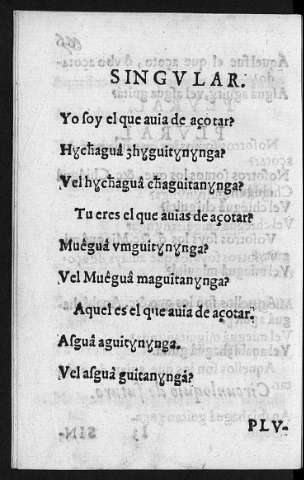 SINGVLAR.
Yo soy el que auia de açotar?
Hycħaguâ ʒhyguitynynga?
Vel hycħaguâ cħaguitanynga?
Tu eres el que auias de açotar?
Muêguâ vmguitynynga?
Vel Muêguâ maguitanynga?
Aquel es el que auia de açotar.
Asguâ aguitynynga.
Vel asguâ guitanyngâ?
PLV-